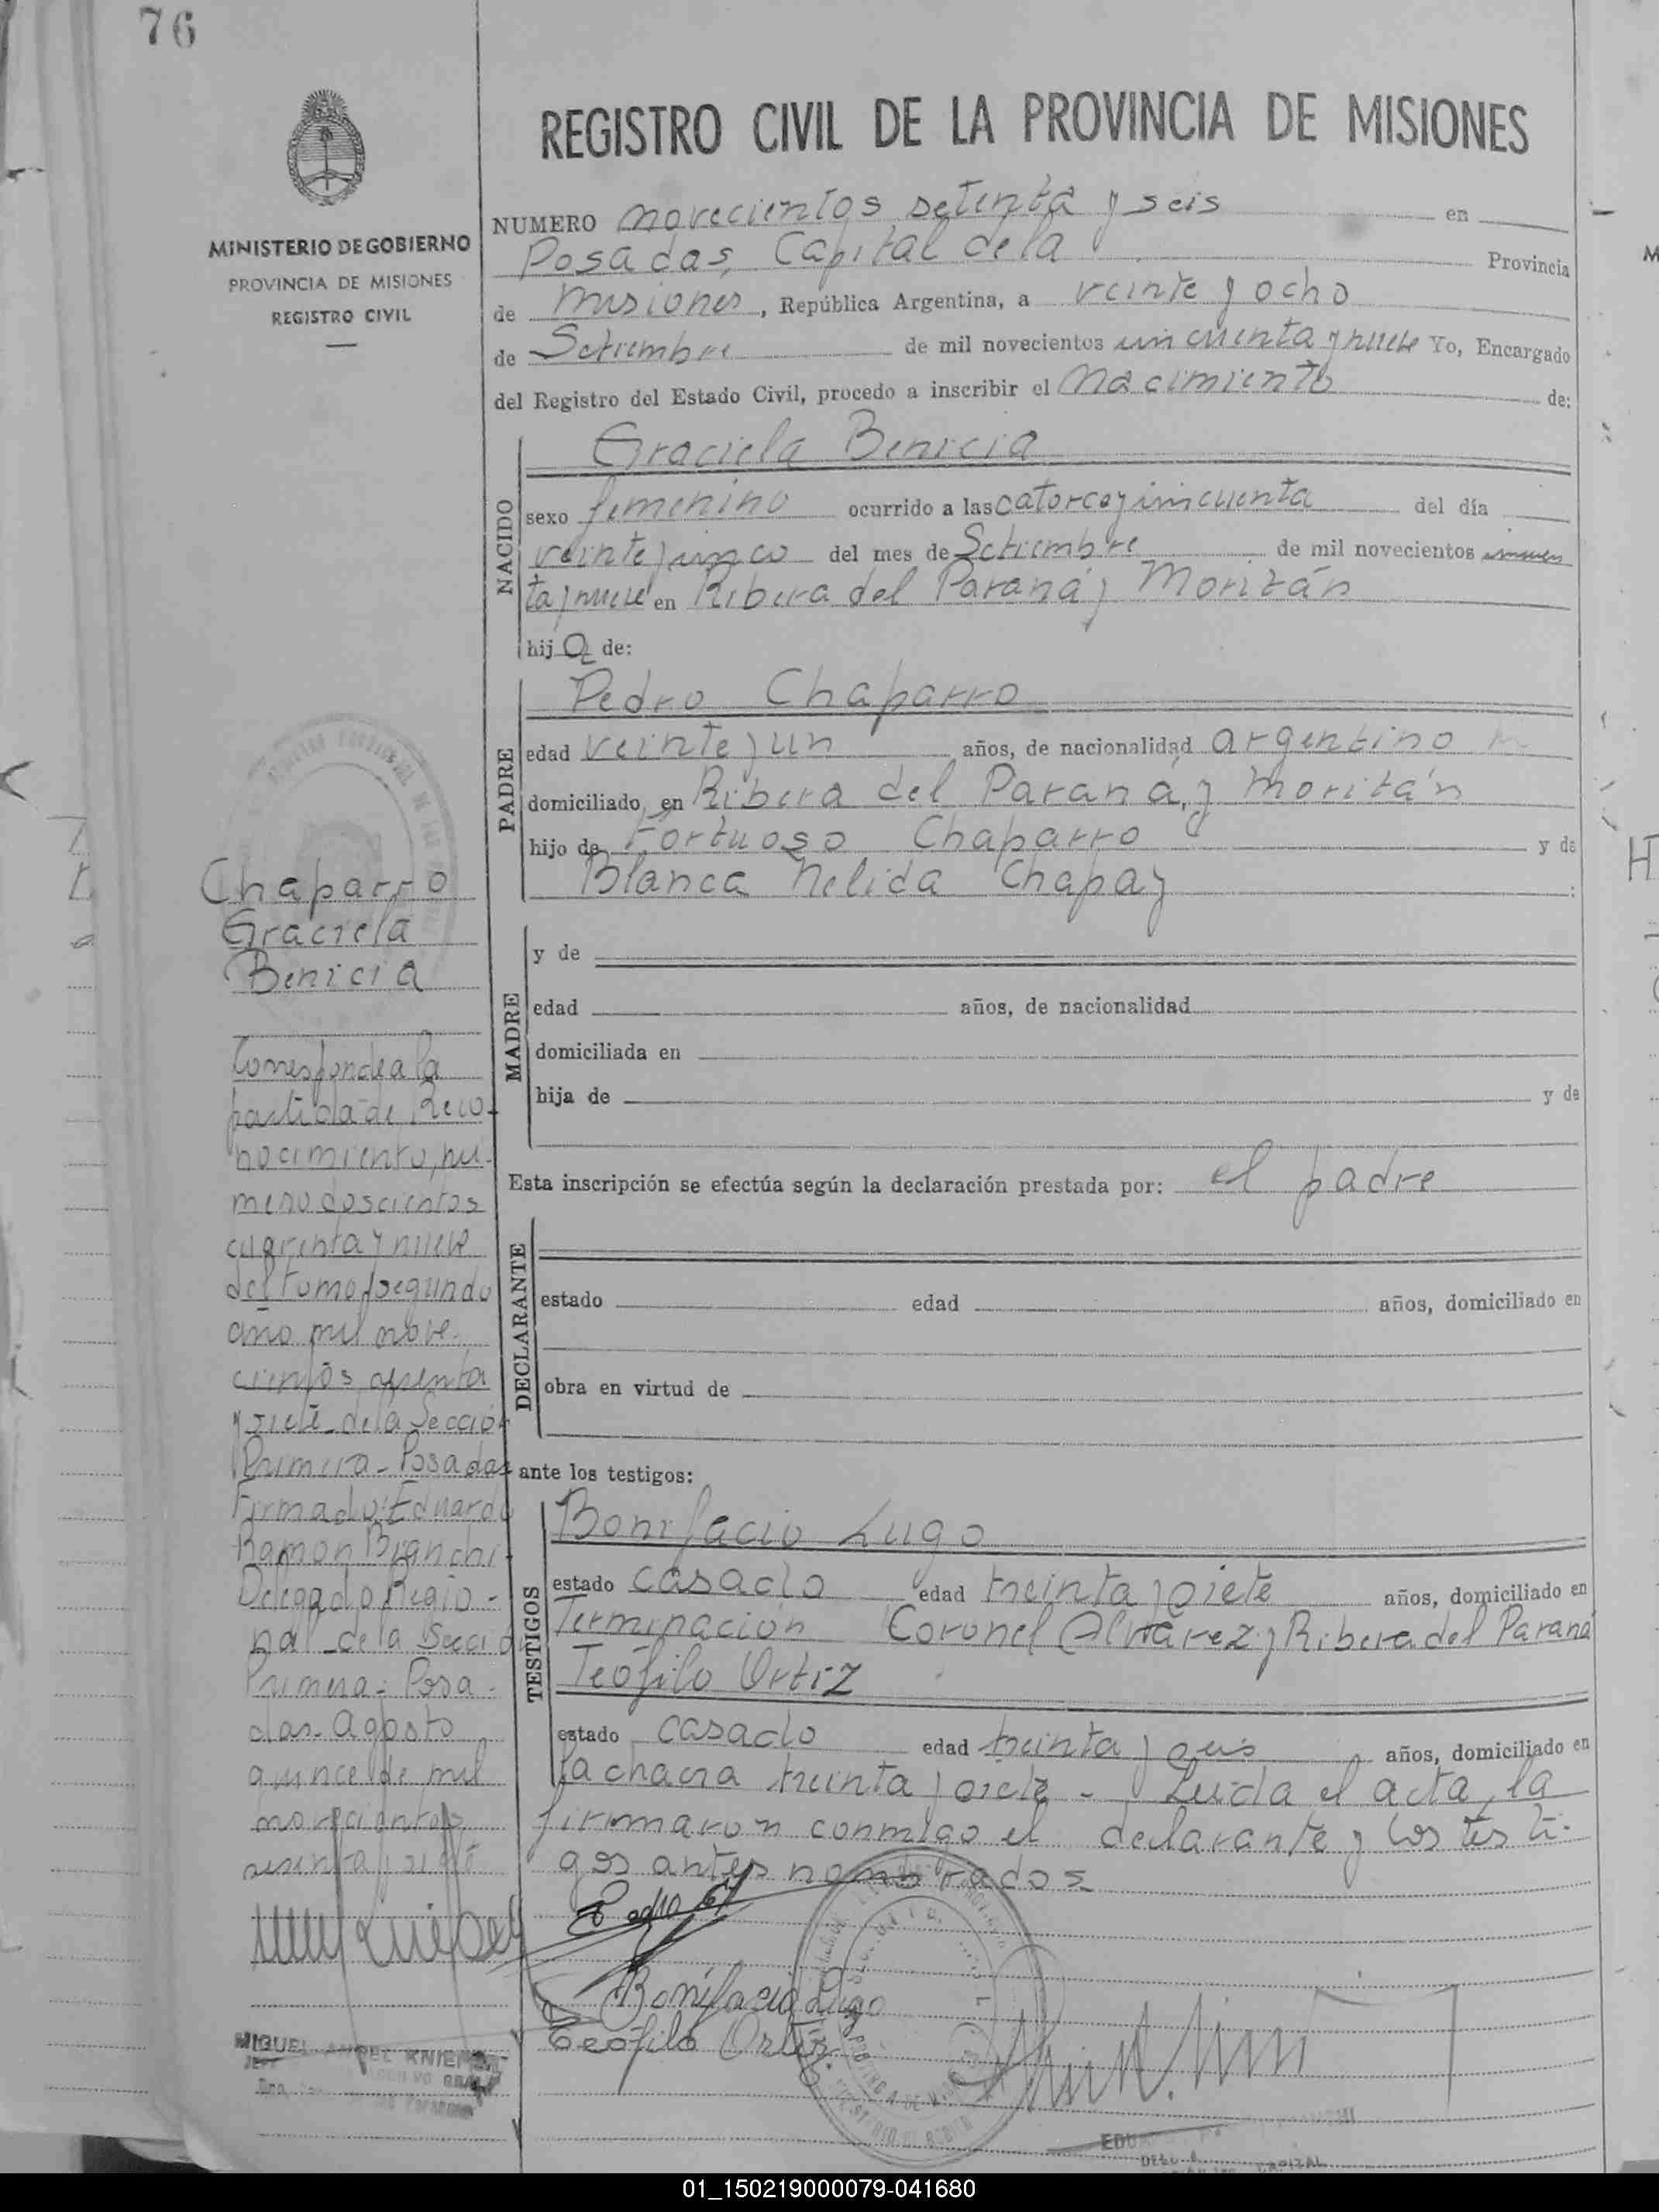 76
REGISTRO CIVIL DE LA PROVINCIA DE MISIONES
MINISTERIO DE GOBIERNO
PROVINCIA DE MISIONES
REGISTRO CIVIL
NUMERO novecientos setenta y seis en
Posadas, Capital de la Provincia
de Misiones, República Argentina, a veinte y ocho
de Setiembre de mil novecientos cincuenta y nueve Yo, Encargado
del Registro del Estado Civil, procedo a inscribir el Nacimiento de:
NACIDO
Graciela Benicia
sexo femenino ocurrido a las catorce y cincuenta del día
veinte y cinco del mes de Setiembre de mil novecientos cincuen
ta y nueve en Ribera del Paraná y Moritán
hija de:
PADRE
Pedro Chaparro
edad veinte y un años, de nacionalidad argentino
domiciliado en Ribera del Paraná, y Moritán
hijo de Fortuoso Chaparro y de
Blanca Nelida Chapay
MADRE
y de
edad años, de nacionalidad
domiciliada en
hija de y de
Esta inscripción se efectúa según la declaración prestada por: el padre
DECLARANTE
estado edad años, domiciliado en
obra en virtud de
ante los testigos:
TESTIGOS
Bonifacio Lugo
estado casado edad treinta y siete años, domiciliado en
Terminación Coronel Alvarez y Ribera del Paraná
Teófilo Ortiz
estado casado edad treinta y seis años, domiciliado en
la chacra treinta y siete - Leida el acta, la
firmaron conmigo el declarante y los testi-
gos antes nombrados
Pedro
Bonifacio Lugo
Teófilo Ortiz
Chaparro
Graciela
Benicia
Corresponde a la
partida de Reco-
nocimiento, nu-
mero doscientos
cuarenta y nueve
del tomo segundo
año mil nove-
cientos sesenta
y siete de la Sección
Primera - Posadas
Firmado: Eduardo
Ramon Bianchi
Delegado Regio-
nal de la Secció
Primera - Posa-
das - Agosto
quince de mil
novecientos
sesenta y siete
MIGUEL ANGEL KNIE
CAPITAL
01_150219000079-041680